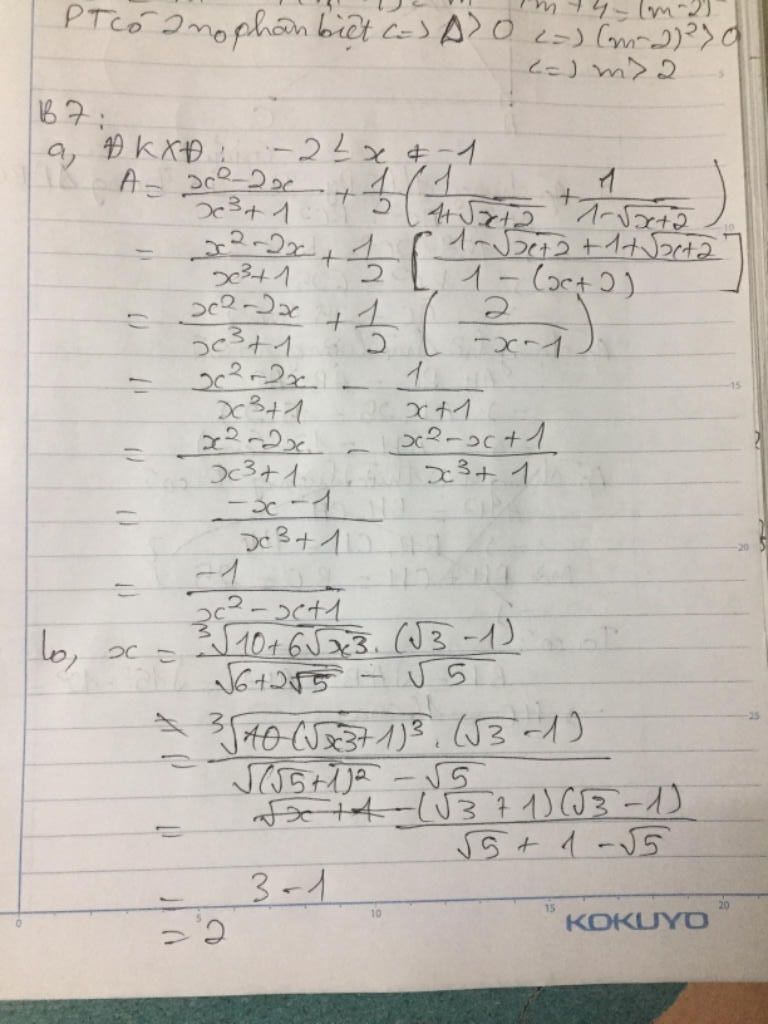 m + 4 = (m-2)
PT có 2 no phân biệt <=> Δ > 0 <=> (m-2)² > 0
<=> m > 2
B7:
a, ĐKXĐ: -2 ≤ x ≠ -1
A = (x²-2x)/(x³+1) + 1/2 (1/(1+√(x+2)) + 1/(1-√(x+2)))
= (x²-2x)/(x³+1) + 1/2 [(1-√(x+2) + 1+√(x+2))/(1-(x+2))]
= (x²-2x)/(x³+1) + 1/2 (2/(-x-1))
= (x²-2x)/(x³+1) - 1/(x+1)
= (x²-2x)/(x³+1) - (x²-x+1)/(x³+1)
= (-x-1)/(x³+1)
= -1/(x²-x+1)
b, x = (∛(10+6√3).(√3-1))/(√(6+2√5) - √5)
= (∛((√3+1)³).(√3-1))/(√((√5+1)²) - √5)
= ((√3+1)(√3-1))/(√5+1-√5)
= 3-1
= 2
5 10 15 20
KOKUYO